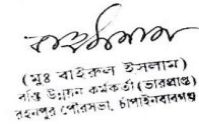 (মুঃ বাইরুল ইসলাম)
বস্তি উন্নয়ন কর্মকর্তা (ভারপ্রাপ্ত)
রহনপুর পৌরসভা, চাঁপাইনবাবগঞ্জ